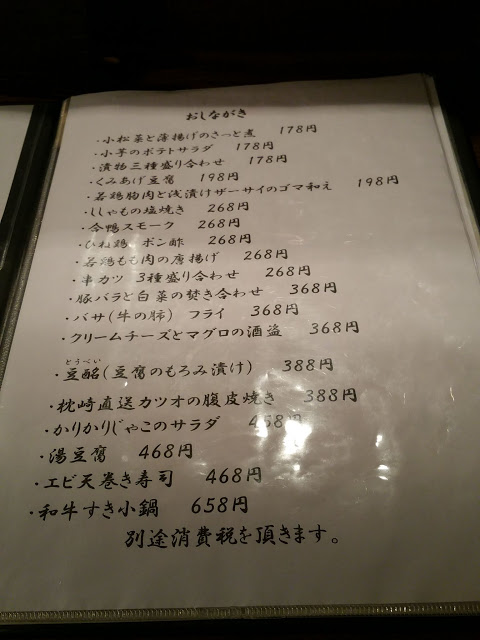 おしながき
・小松菜と薄揚げのさっと煮 178円
・小芋のポテトサラダ 178円
・漬物三種盛り合わせ 178円
・くみあげ豆腐 198円
・若鶏胸肉と浅漬けザーサイのゴマ和え 198円
・ししゃもの塩焼き 268円
・合鴨スモーク 268円
・ひね鶏、ポン酢 268円
・若鶏もも肉の唐揚げ 268円
・串カツ 3種盛り合わせ 268円
・豚バラと白菜の炊き合わせ 368円
・バサ(牛の肺) フライ 368円
・クリームチーズとマグロの酒盗 368円
とうべい
・豆酩(豆腐のもろみ漬け) 388円
・枕崎直送カツオの腹皮焼き 388円
・かりかりじゃこのサラダ 468円
・湯豆腐 468円
・エビ天巻き寿司 468円
・和牛すき小鍋 658円
別途消費税を頂きます。